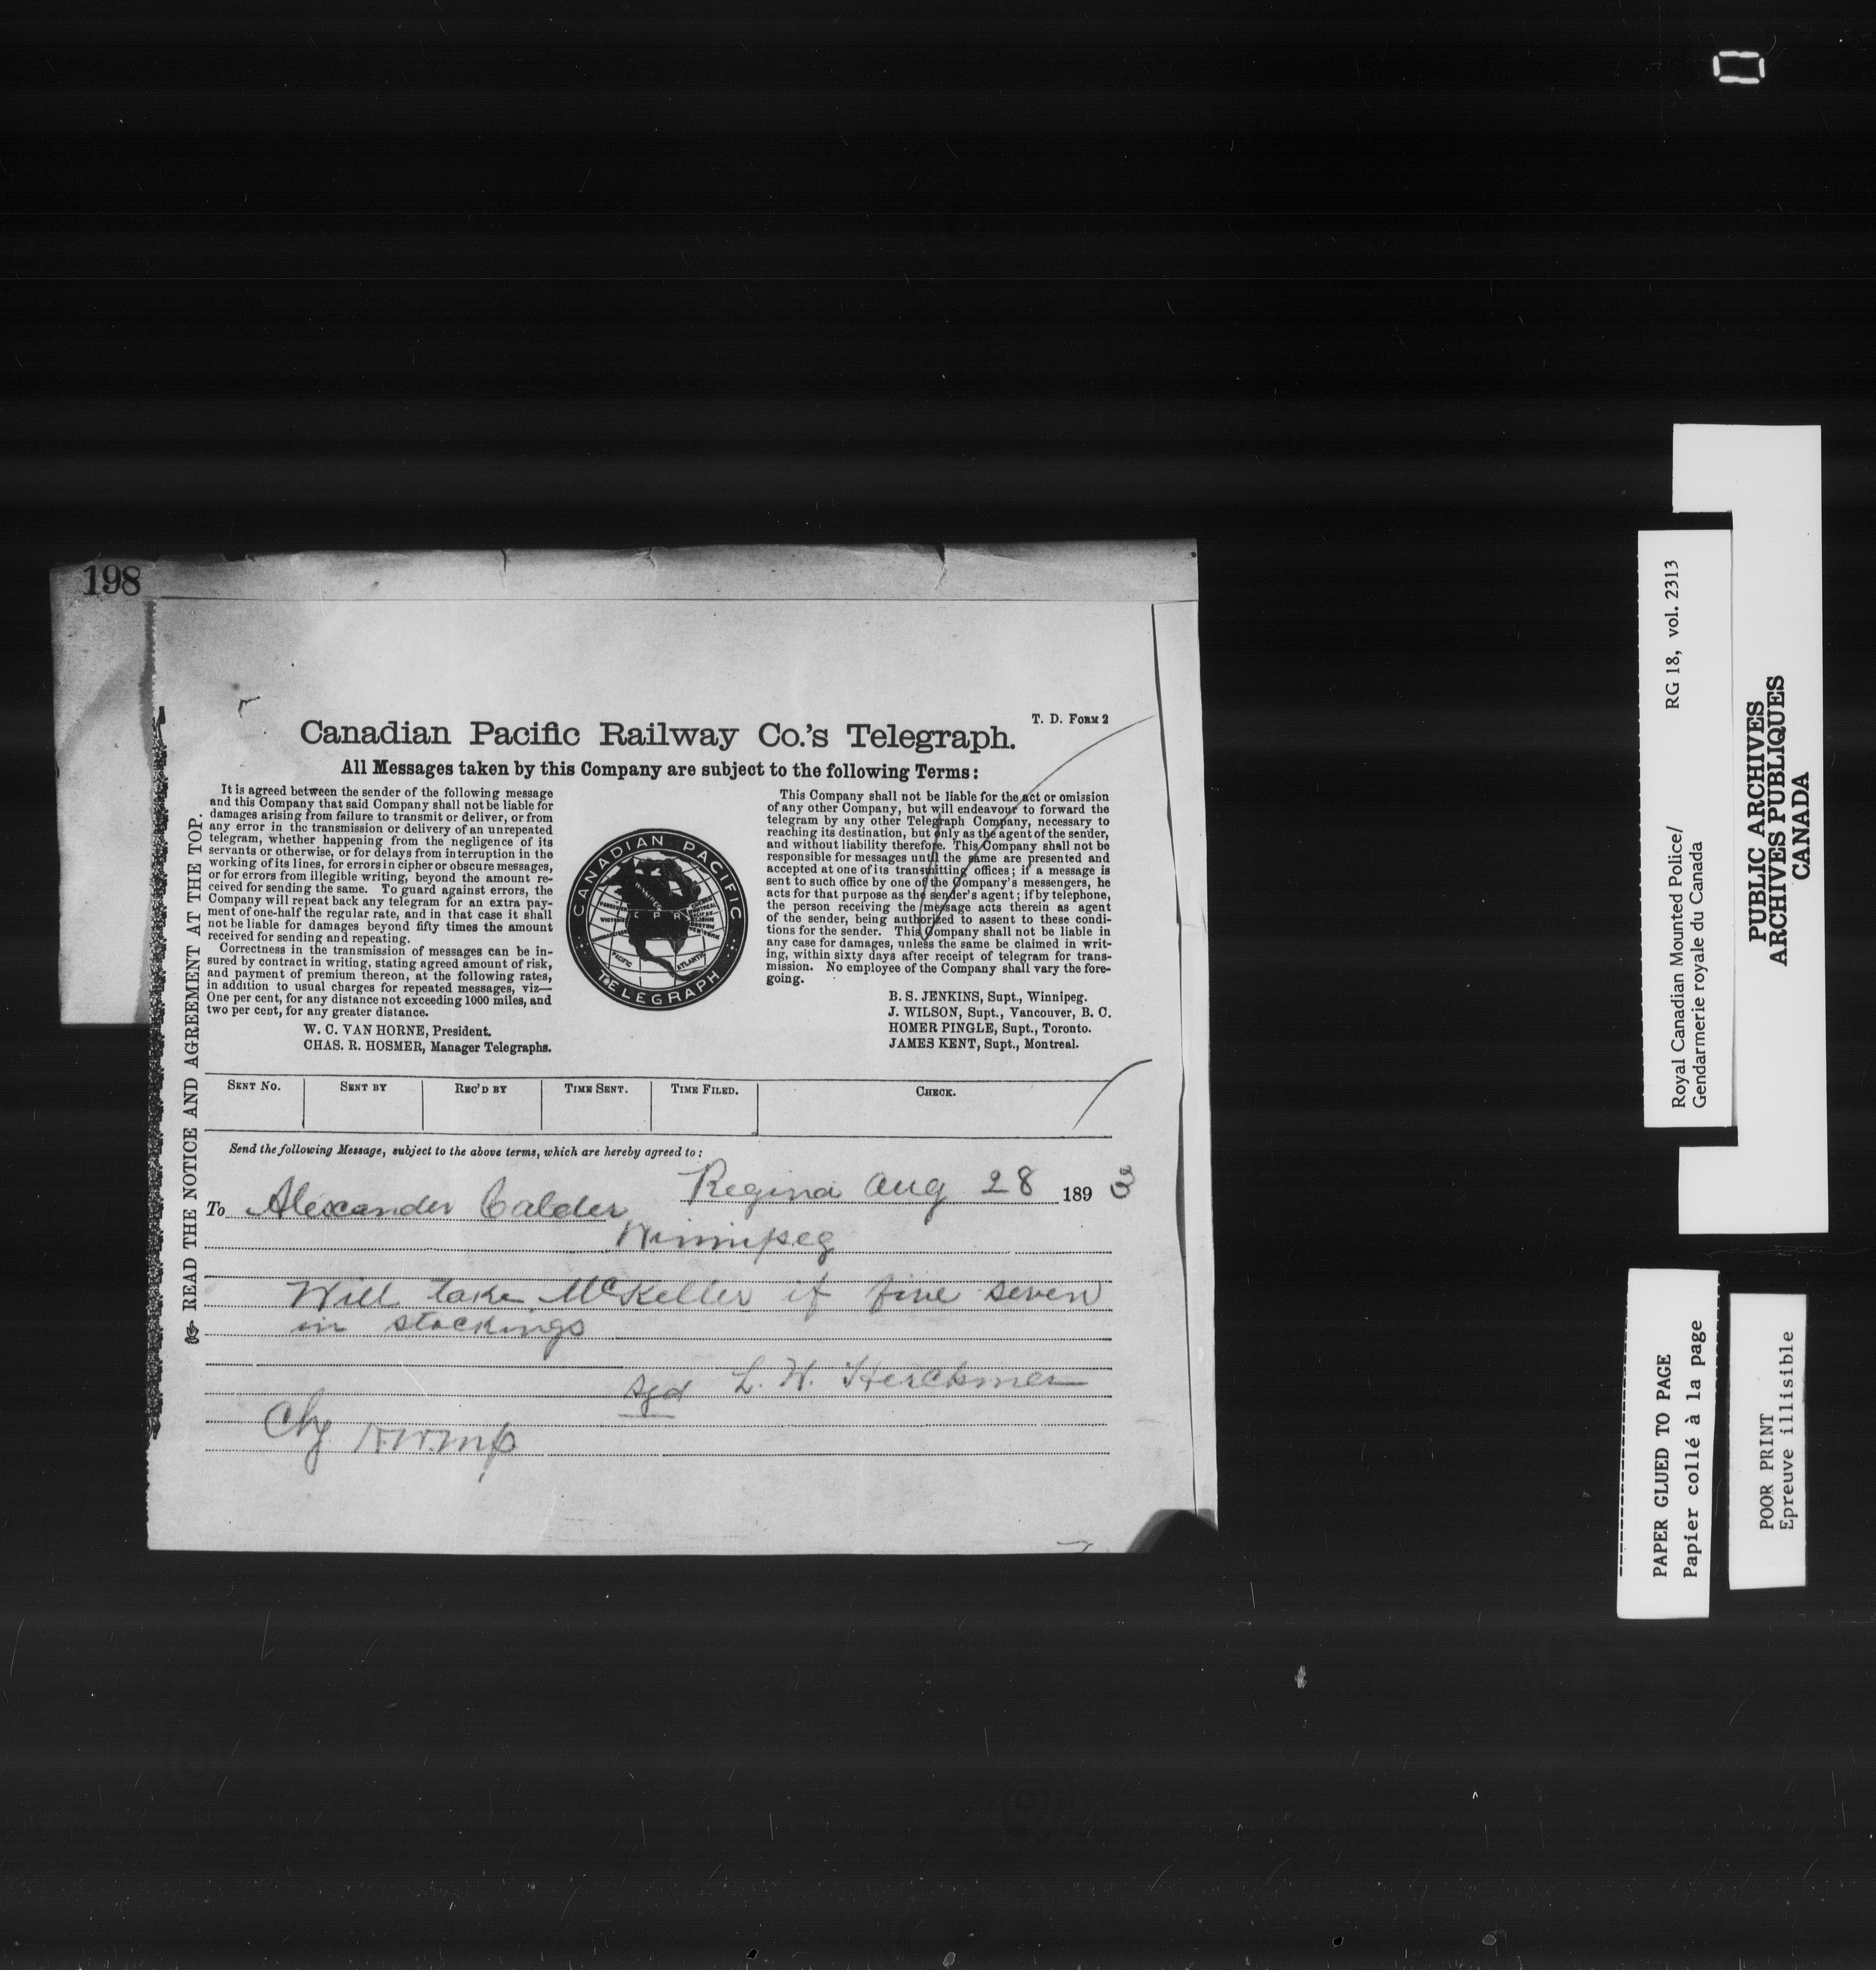 198
T. D. FORM 2
Canadian Pacific Railway Co.'s Telegraph.
All Messages taken by this Company are subject to the following Terms:
It is agreed between the sender of the following message
and this Company that said Company shall not be liable for
damages arising from failure to transmit or deliver, or from
any error in the transmission or delivery of an unrepeated
telegram, whether happening from the negligence of its
servants or otherwise, or for delays from interruption in the
working of its lines, for errors in cipher or obscure messages,
or for errors from illegible writing, beyond the amount re-
ceived for sending the same. To guard against errors, the
Company will repeat back any telegram for an extra pay-
ment of one-half the regular rate, and in that case it shall
not be liable for damages beyond fifty times the amount
received for sending and repeating.
Correctness in the transmission of messages can be in-
sured by contract in writing, stating agreed amount of risk,
and payment of premium thereon, at the following rates,
in addition to usual charges for repeated messages, viz—
One per cent, for any distance not exceeding 1000 miles, and
two per cent, for any greater distance.
W. C. VAN HORNE, President.
CHAS. R. HOSMER, Manager Telegraphs.
CANADIAN PACIFIC
WINNIPEG
C P R
PACIFIC
ATLANTIC
TELEGRAPH
This Company shall not be liable for the act or omission
of any other Company, but will endeavour to forward the
telegram by any other Telegraph Company, necessary to
reaching its destination, but only as the agent of the sender,
and without liability therefore. This Company shall not be
responsible for messages until the same are presented and
accepted at one of its transmitting offices; if a message is
sent to such office by one of the Company's messengers, he
acts for that purpose as the sender's agent; if by telephone,
the person receiving the message acts therein as agent
of the sender, being authorized to assent to these condi-
tions for the sender. This Company shall not be liable in
any case for damages, unless the same be claimed in writ-
ing, within sixty days after receipt of telegram for trans-
mission. No employee of the Company shall vary the fore-
going.
B. S. JENKINS, Supt., Winnipeg.
J. WILSON, Supt., Vancouver, B. C.
HOMER PINGLE, Supt., Toronto.
JAMES KENT, Supt., Montreal.
READ THE NOTICE AND AGREEMENT AT THE TOP.
SENT NO. SENT BY REC'D BY TIME SENT. TIME FILED. CHECK.
Send the following Message, subject to the above terms, which are hereby agreed to:
Regina Aug 28 1893
To Alexander Calder
Winnipeg
Will take McKeller if five seven
in stockings
sgd L. W. Herchmer
Chg NWMP
Royal Canadian Mounted Police/ RG 18, vol. 2313
Gendarmerie royale du Canada
PUBLIC ARCHIVES
ARCHIVES PUBLIQUES
CANADA
PAPER GLUED TO PAGE
Papier collé à la page
POOR PRINT
Epreuve illisible